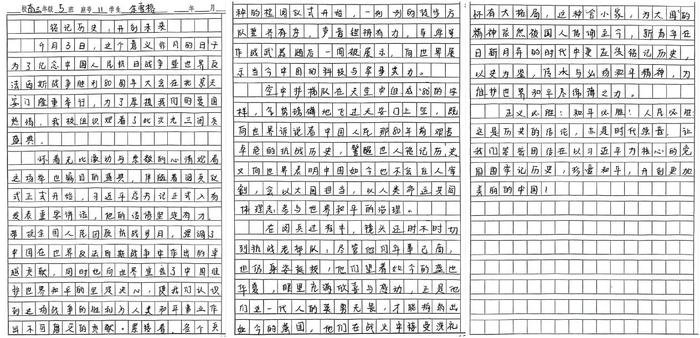 校高三年级5班 座号11学生 年 月
铭记历史,开创未来
9月3日,这个意义非凡的日子
为了纪念中国人民抗日战争暨世界反
法西斯战争胜利80周年大会在北京天
安门隆重举行,为了厚植我们的爱国
热情,我校组织观看了此次九三阅兵
盛典。
怀着无比激动与崇敬的心情观看
这场举世瞩目的盛典,伴随着阅兵仪
式正式开始,习近平总书记正式入场
发表重要讲话,他的话语坚定有力,
带领全国人民回顾抗战岁月,强调了
中国在世界反法西斯战争中作出的卓
越贡献,同时也向世界宣告了中国维
护世界和平的坚定决心,使我们认识
到这场战争的胜利为人类和平事业作
出不可磨灭的贡献。紧接着,各个兵
种的检阅仪式开始,一列列的徒步方
队整齐有序,声音铿锵有力,
作战武器随后一同被展示,向世界展
示当今中国的科技与军事实力。
空中护旗队在天空中组成“80”的字
样,气势磅礴地飞过天安门上空,既
向世界诉说着中国人民那80年前艰苦
卓绝的抗战历史,警醒世人铭记历史
又向世界表明中国如今也不会任人宰
割,会以大国担当,以人类命运共同
体理念参与世界和平的治理。
在阅兵过程中,镜头还时不时切
到抗战老兵队,尽管他们年事已高,
也仍身姿挺拔,他们望着如今的盛世
华章,眼里充满欣喜与感动,正是他
们这一代人的英勇无畏,才能换出
如今的盛国,他们在战火中接受洗礼
怀有大格局,这种舍小家,为大国的
精神依然被国人传诵至今,新青年在
日新月异的时代中更应铭记历史,
以史为鉴,和平精神,为
维护世界和平尽绵薄之力。
正义必胜!和平必胜!人民必胜
这是历史的结论,亦是时代强音,让
我们紧密团结在以习近平为核心的党
周围牢记历史,珍爱和平,开创更加
美丽的中国!